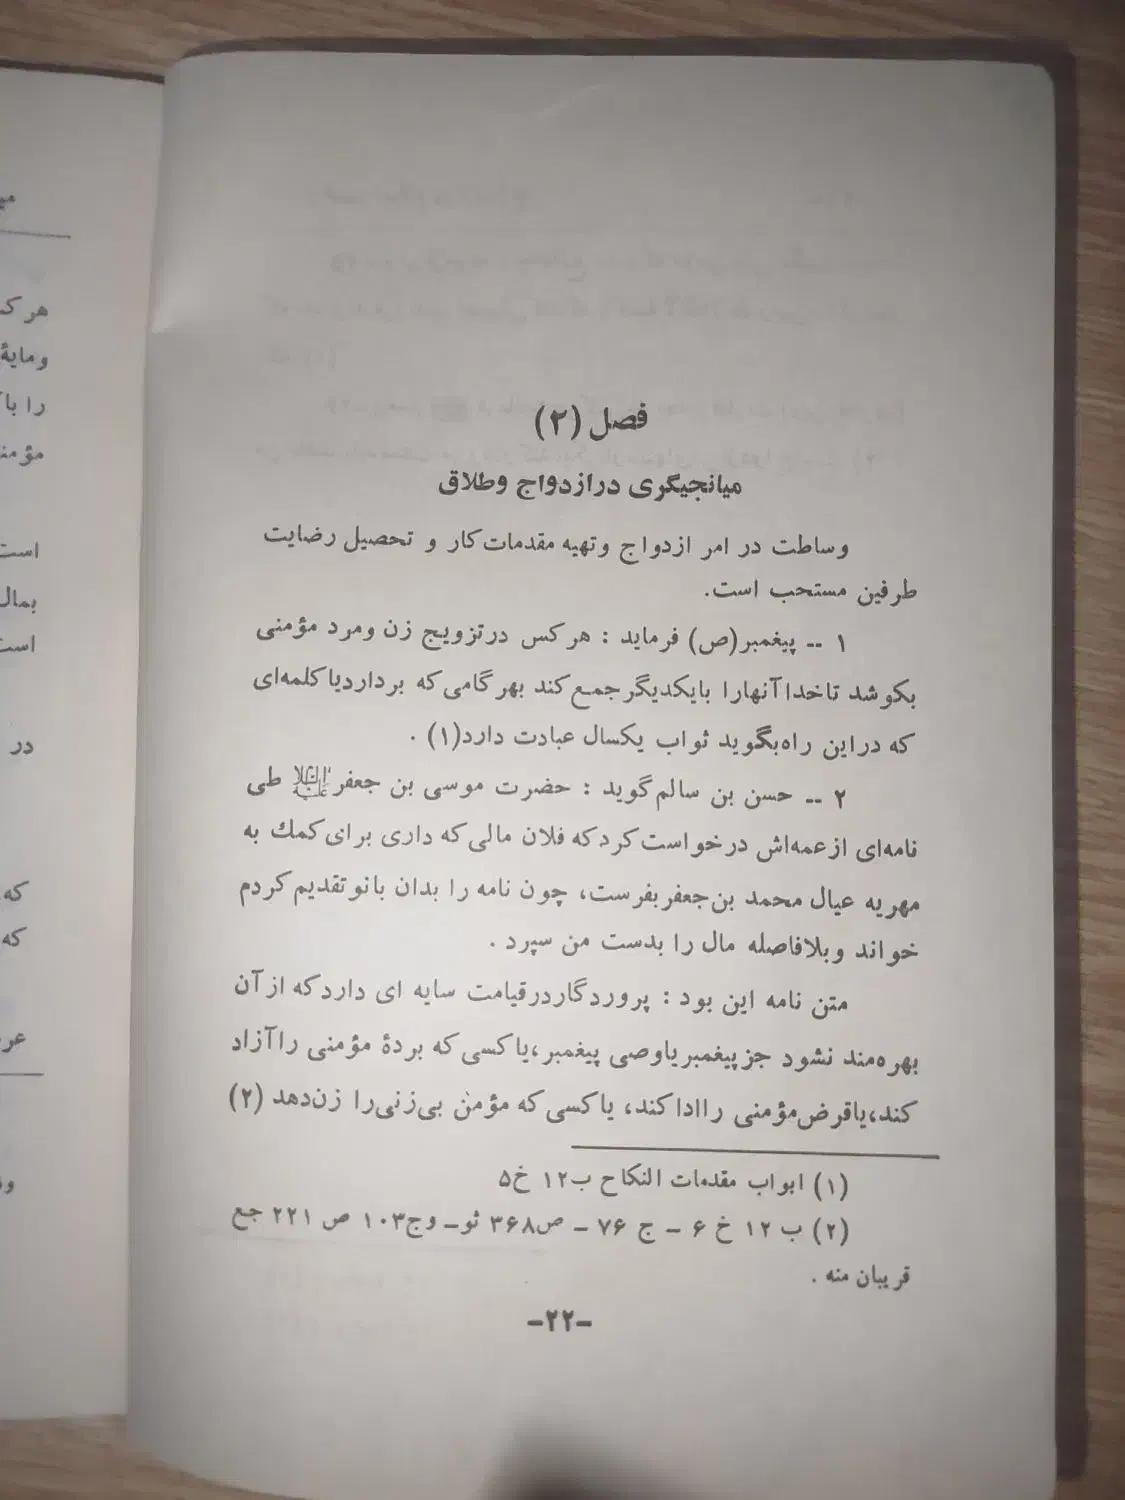 فصل (۲)
میانجیگری در ازدواج و طلاق
وساطت در امر ازدواج و تهیه مقدمات کار و تحصیل رضایت
طرفین مستحب است.
۱ -- پیغمبر(ص) فرماید : هر کس در تزویج زن و مرد مؤمنی
بکوشد تا خدا آنها را با یکدیگر جمع کند بهر گامی که بردارد یا کلمه‌ای
که در این راه بگوید ثواب یکسال عبادت دارد(۱) .
۲ -- حسن بن سالم گوید : حضرت موسی بن جعفر علیه‌السلام طی
نامه‌ای از عمه‌اش درخواست کرد که فلان مالی که داری برای کمك به
مهریه عیال محمد بن جعفر بفرست، چون نامه را بدان بانو تقدیم کردم
خواند و بلافاصله مال را بدست من سپرد .
متن نامه این بود : پروردگار در قیامت سایه ای دارد که از آن
بهره‌مند نشود جز پیغمبر یا وصی پیغمبر، یا کسی که بردۀ مؤمنی را آزاد
کند، یا قرض مؤمنی را ادا کند، یا کسی که مؤمن بی‌زنی را زن دهد (۲)
(۱) ابواب مقدمات النکاح ب۱۲ خ۵
(۲) ب ۱۲ خ ۶ - ج ۷۶ - ص۳۶۸ ثو- وج۱۰۳ ص ۲۲۱ جع
قریبان منه .
-۲۲-
هر ک
ومایۀ
را با
است
بمال
است
در
که
که